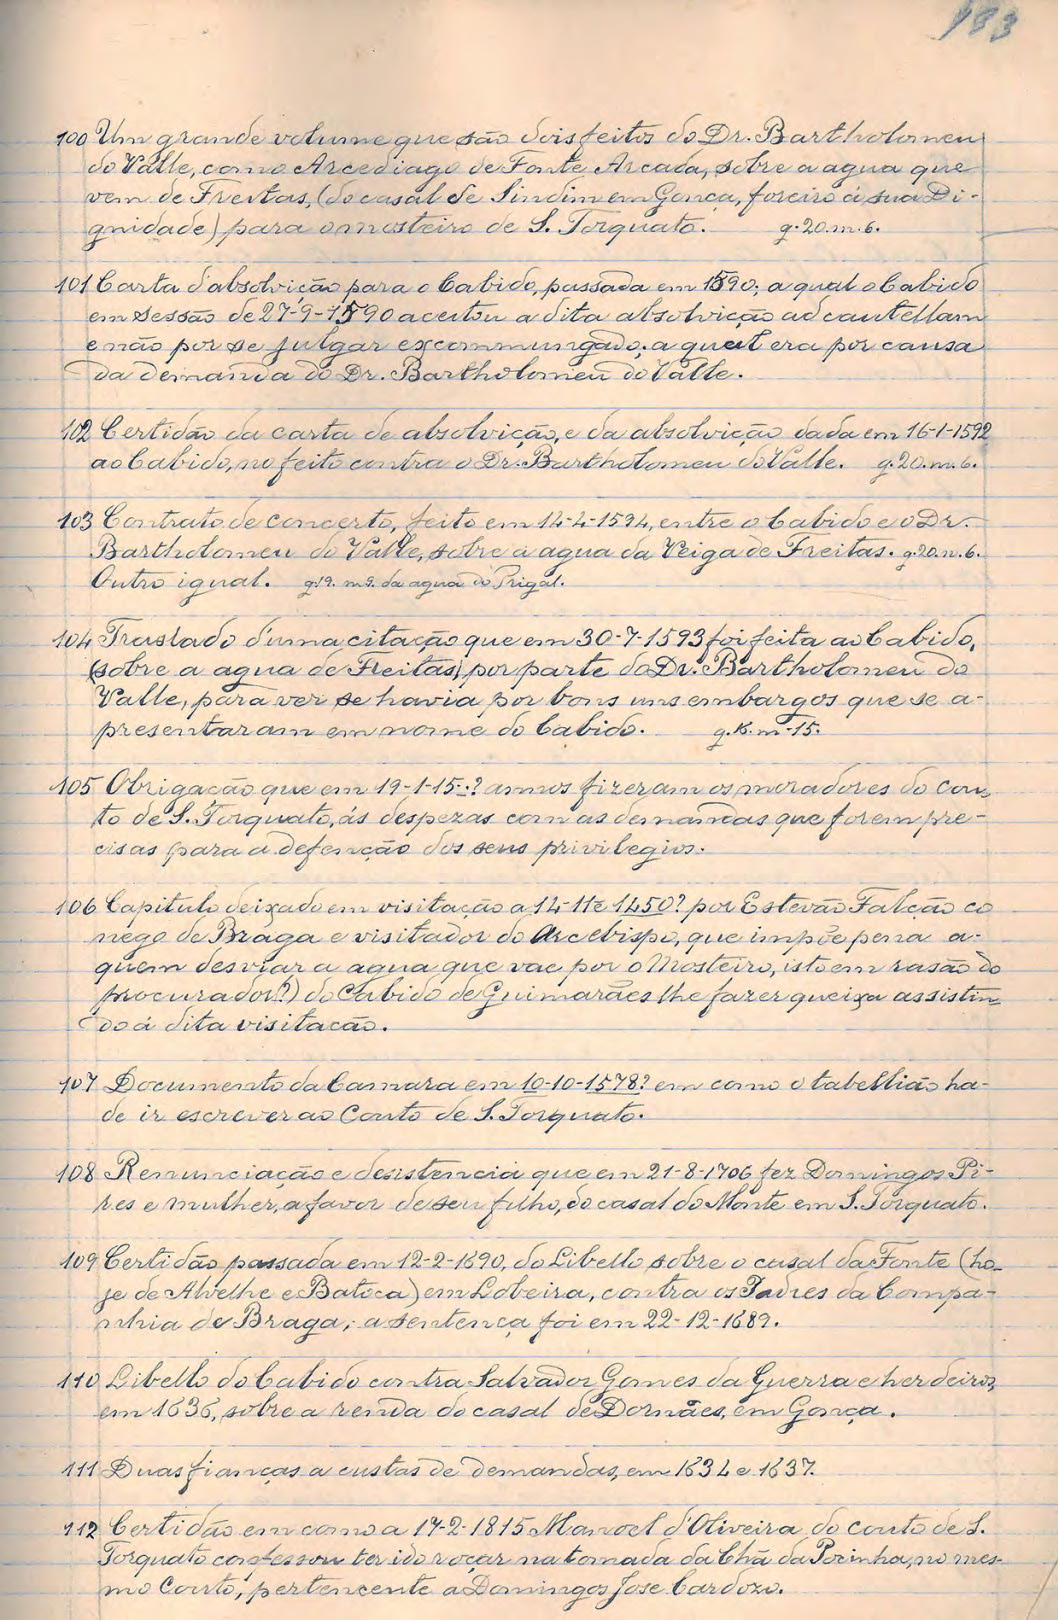 133
100 Um grande volume que são dois feitos do Dr. Bartholomeu
do Valle, como Arcediago de Fonte Arcada, sobre a agua que
vem de Freitas, (do casal de Sindim em Gonça, foreiro á sua Di-
gnidade) para o mosteiro de S. Torquato. g. 20. m. 6.
101 Carta d'absolvição para o Cabido, passada em 1590; a qual o Cabido
em sessão de 27-9-1590 aceitou a dita absolvição ad cautellam
e não por se julgar excommungado; a qual era por causa
da demanda do Dr. Bartholomeu do Valle.
102 Certidão da carta de absolvição, e da absolvição dada em 16-1-1592
ao Cabido, no feito contra o Dr. Bartholomeu do Valle. g. 20. m. 6.
103 Contrato de concerto, feito em 14-4-1594, entre o Cabido e o Dr.
Bartholomeu do Valle, sobre a agua da Veiga de Freitas. g. 20. m. 6.
Outro igual. g. 19. m. 9. da agua do Prigal.
104 Traslado d'uma citação que em 30-7-1593 foi feita ao Cabido,
(sobre a agua de Freitas) por parte do Dr. Bartholomeu do
Valle, para ver se havia por bons uns embargos que se a-
presentaram em nome do Cabido. g. m. 15.
105 Obrigação que em 19-1-15..? annos fizeram os moradores do cou-
to de S. Torquato, ás despezas com as demandas que forem pre-
cisas para a defenção dos seus privilegios.
106 Capitulo deixado em visitação a 14-11 e 1450? por Estevão Falcão co
nego de Braga e visitador do Arcebispo, que impõe pena a-
quem desviar a agua que vae por o Mosteiro, isto em rasão do
procurador?) do Cabido de Guimarães lhe fazer queixa assistin=
do á dita visitacão.
107 Documento da Camara em 10-10-1578? em como o tabellião ha-
de ir escrever ao Couto de S. Torquato.
108 Renunciação e desistencia que em 21-8-1706 fez Domingos Pi-
res e mulher, a favor de seu filho, do casal do Monte em S. Torquato.
109 Certidão passada em 12-2-1690, do Libello sobre o casal da Fonte (ho-
je de Alvelhe e Batoca) em Lobeira, contra os Padres da Compa-
nhia de Braga; a sentença foi em 22-12-1689.
110 Libello do Cabido contra Salvador Gomes da Guerra e herdeiros,
em 1636, sobre a renda do casal de Dornães, em Gonça.
111 Duas fianças a custas de demandas, em 1634 e 1637.
112 Certidão em como a 17-2-1815 Manoel d'Oliveira, do couto de S.
Torquato confessou ter ido roçar na tomada da Chã da Pocinha, no mes-
mo Couto, pertencente a Domingos Jose Cardozo.